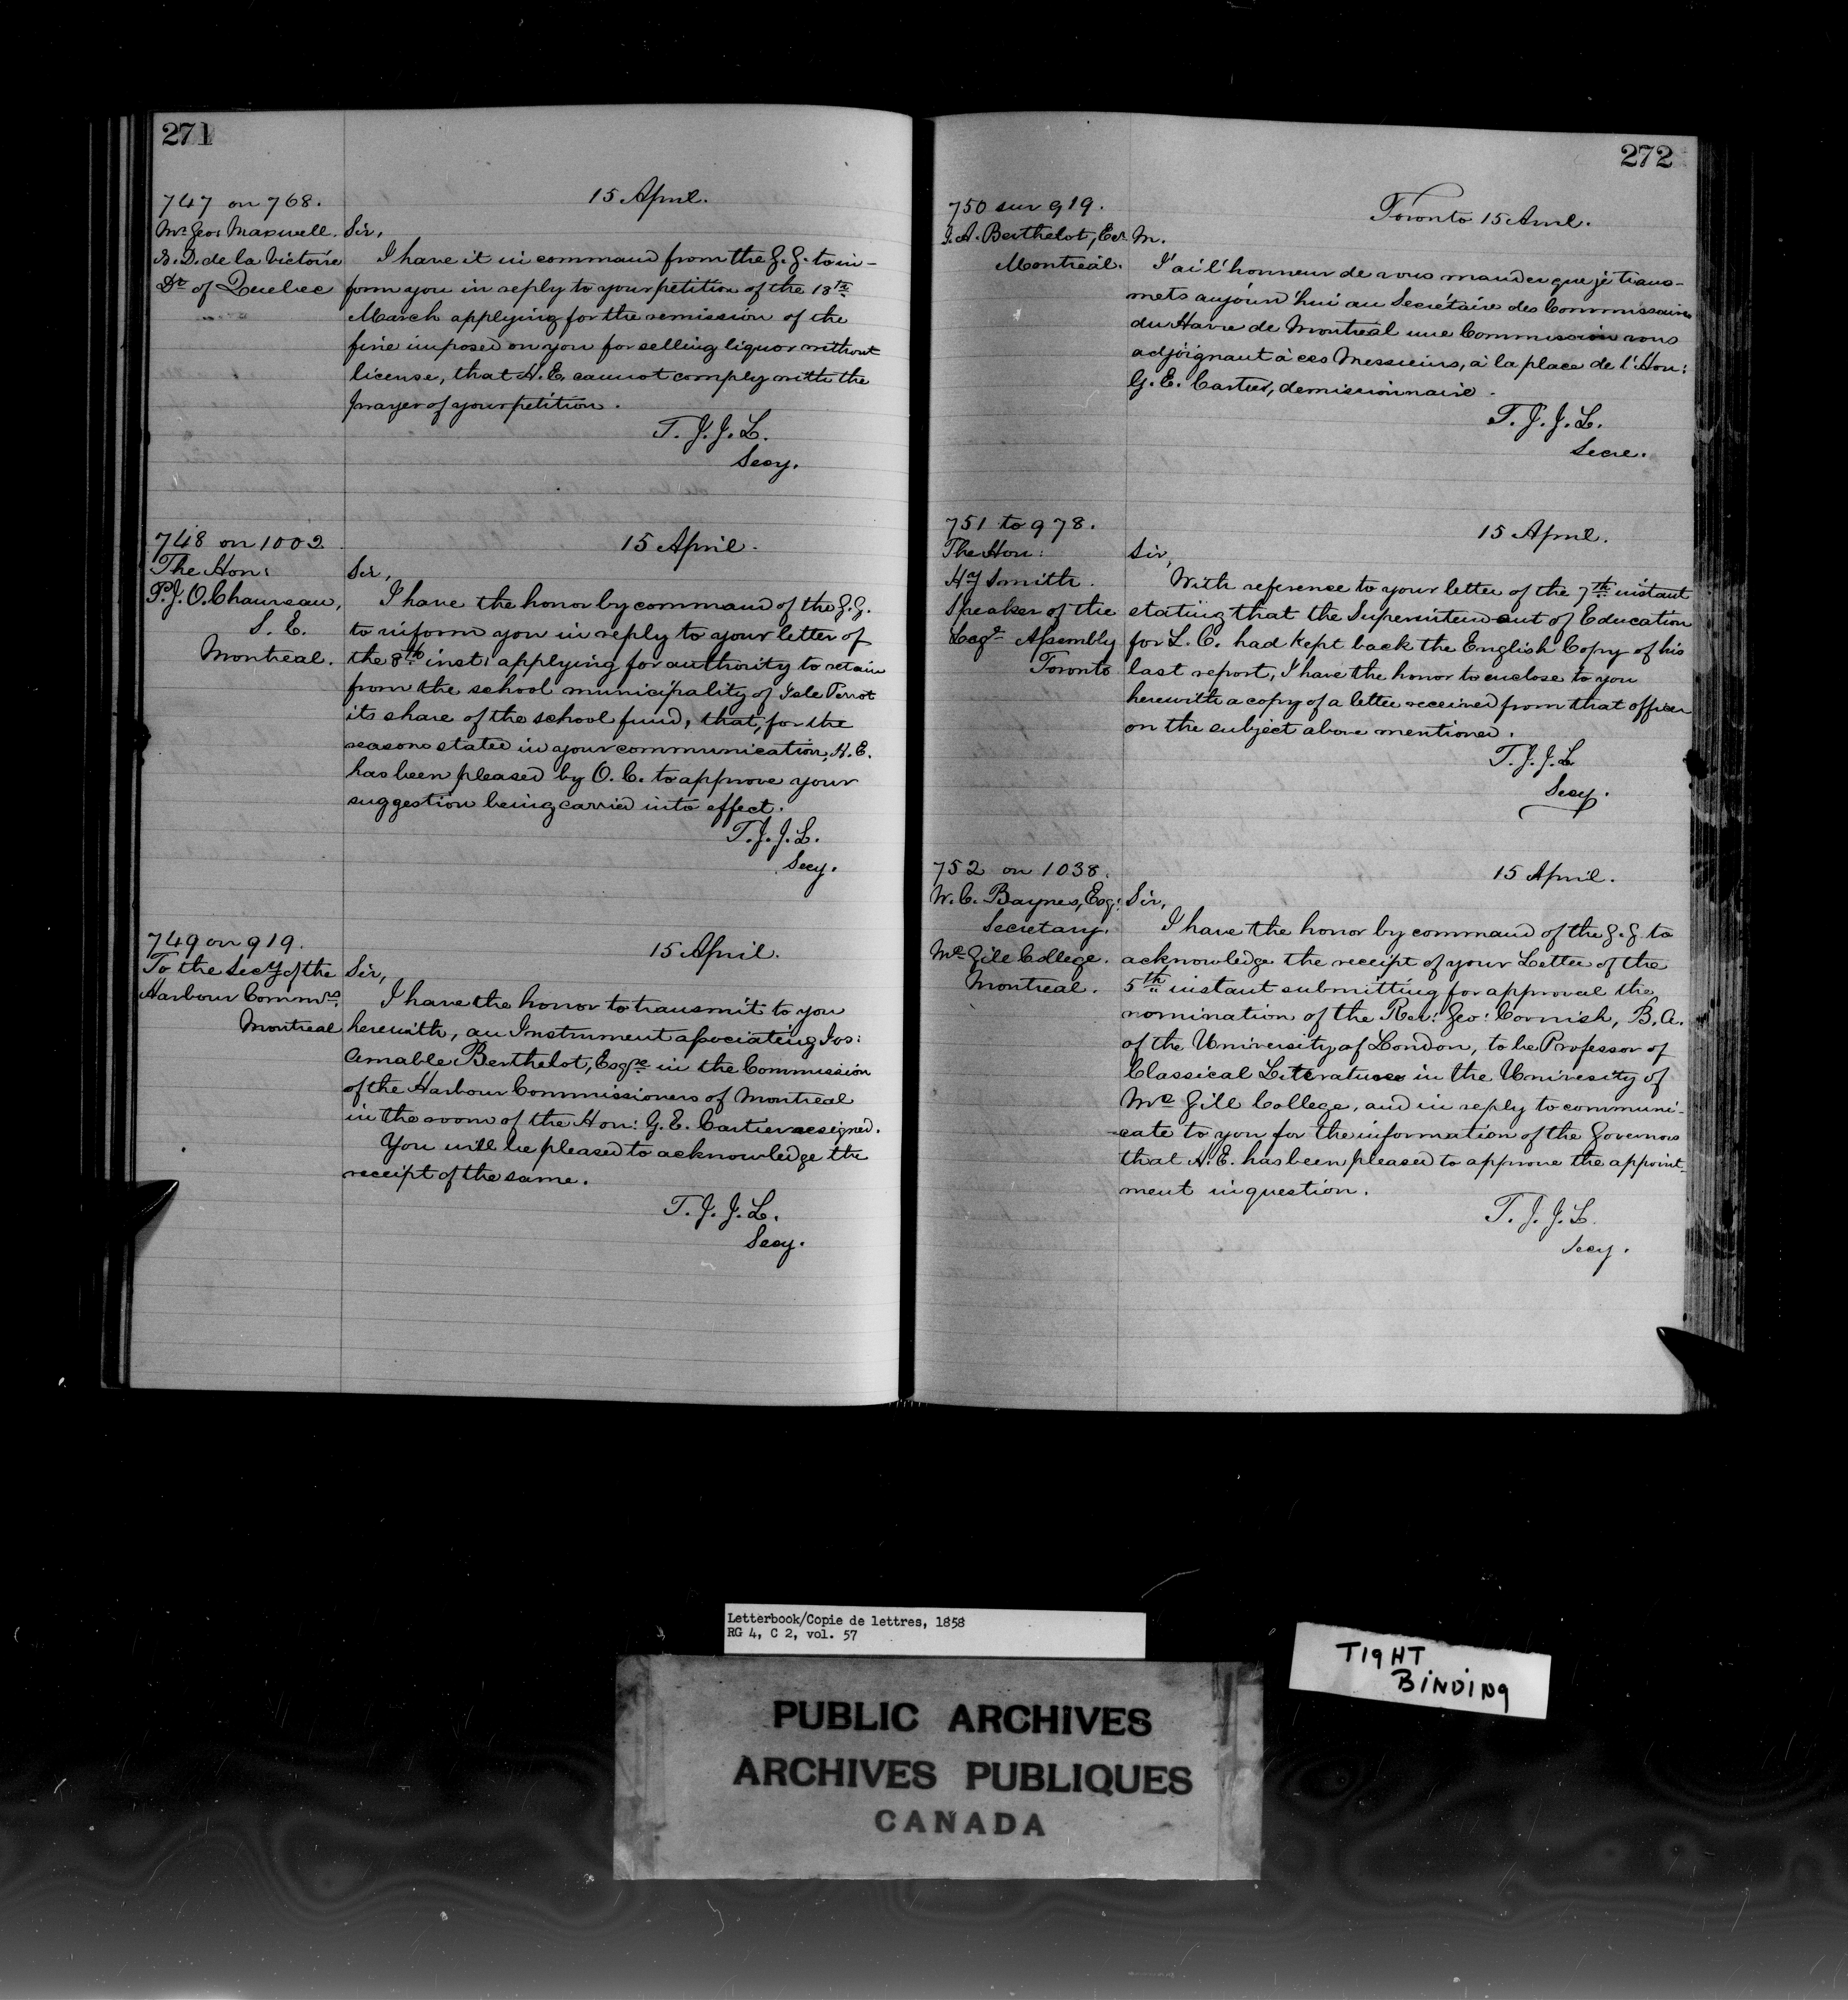 271
747 on 768.
15 April.
Mr. Geo: Maxwell.
N. D. de la Victoire
Dt. of Quebec
Sir,
I have it in command from the G. G. to in-
form you in reply to your petition of the 18th
March applying for the remission of the
fine imposed on you for selling liquor without
license, that H. E. cannot comply with the
prayer of your petition.
T. J. J. L.
Secy.
748 on 1002
15 April.
The Hon:
P. J. O. Chauveau,
S. E.
Montreal.
Sir,
I have the honor by command of the G. G.
to inform you in reply to your letter of
the 8th inst: applying for authority to retain
from the school municipality of Isle Perrot
its share of the school fund, that, for the
reasons stated in your communication, H. E.
has been pleased by O. C. to approve your
suggestion being carried into effect.
T. J. J. L.
Secy.
749 on 919.
15 April.
To the Secy of the
Harbour Commrs.
Montreal
Sir,
I have the honor to transmit to you
herewith, an Instrument associating Jos:
Amable Berthelot, Esqre in the Commission
of the Harbour Commissioners of Montreal
in the room of the Hon: G. E. Cartier resigned.
You will be pleased to acknowledge the
receipt of the same.
T. J. J. L.
Secy.
272
750 sur 919.
Toronto 15 Avril.
J. A. Berthelot, Ecr
Montréal.
M.
J'ai l'honneur de vous mander que je trans-
mets aujourd'hui au Secrétaire des Commissaires
du Havre de Montréal une Commission vous
adjoignant à ces Messieurs, à la place de l'Hon:
G. E. Cartier, demissionnaire.
T. J. J. L.
Secre.
751 to 978.
15 April.
The Hon:
Hy Smith.
Speaker of the
Legve Assembly
Toronto
Sir,
With reference to your letter of the 7th instant
stating that the Superintendent of Education
for L. C. had kept back the English Copy of his
last report, I have the honor to enclose to you
herewith a copy of a letter received from that officer
on the subject above mentioned.
T. J. J. L
Secy.
752 on 1038.
15 April.
W. C. Baynes, Esq:
Secretary.
Mc Gill College.
Montreal.
Sir,
I have the honor by command of the G. G to
acknowledge the receipt of your Letter of the
5th instant submitting for approval the
nomination of the Rev: Geo: Cornish, B. A.
of the University of London, to be Professor of
Classical Literature in the Univesity of
Mc Gill College, and in reply to communi-
-cate to you for the information of the Governors
that H. E. has been pleased to approve the appoint-
ment in question.
T. J. J. L.
Secy.
Letterbook/Copie de lettres, 1858
RG 4, C 2, vol. 57
TIGHT
BINDING
PUBLIC ARCHIVES
ARCHIVES PUBLIQUES
CANADA